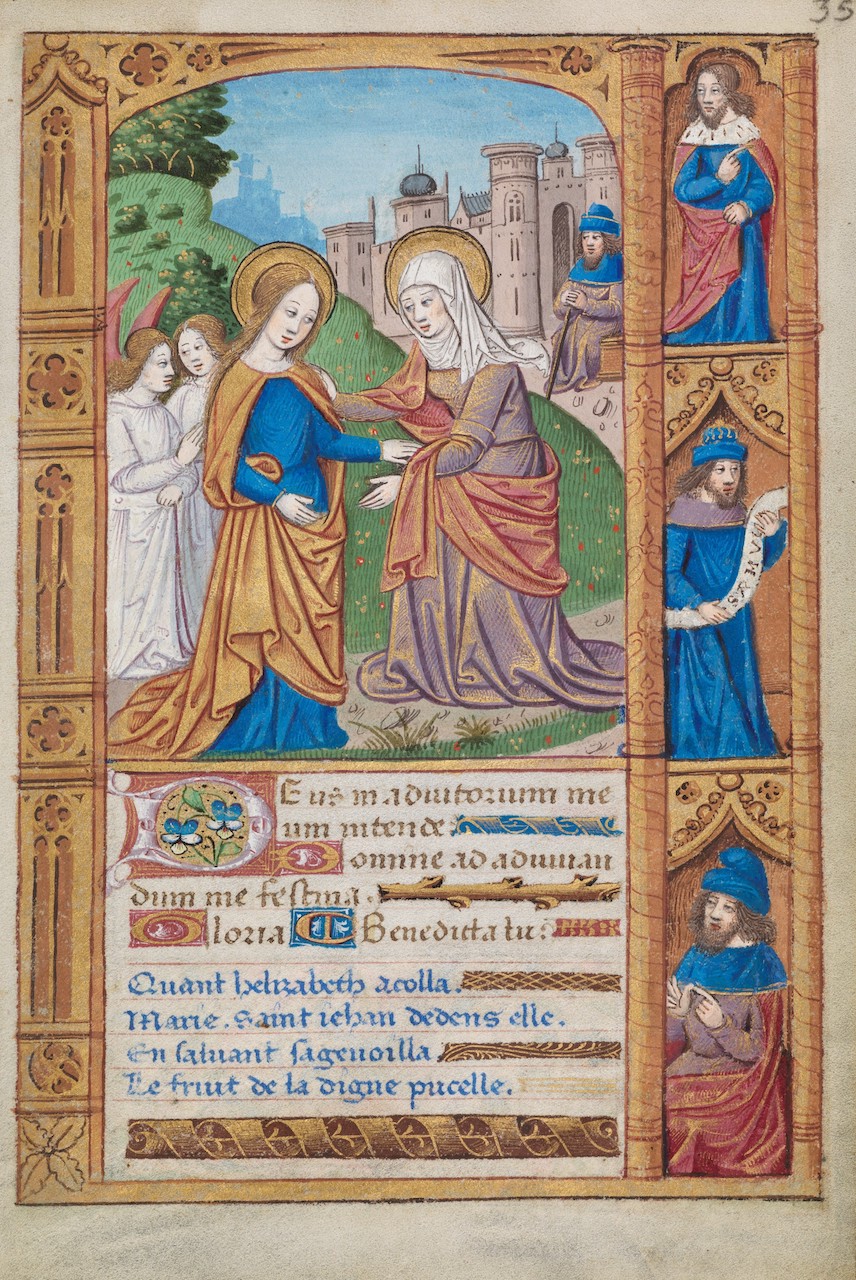 35
Deus in adiutorium me
um intende
Domine ad adiuuan
dum me festina.
Gloria Benedicta tu:
Quant helizabeth acolla.
Marie. Saint iehan dedens elle.
En saluant sagenoilla
Le fruit de la digne pucelle.